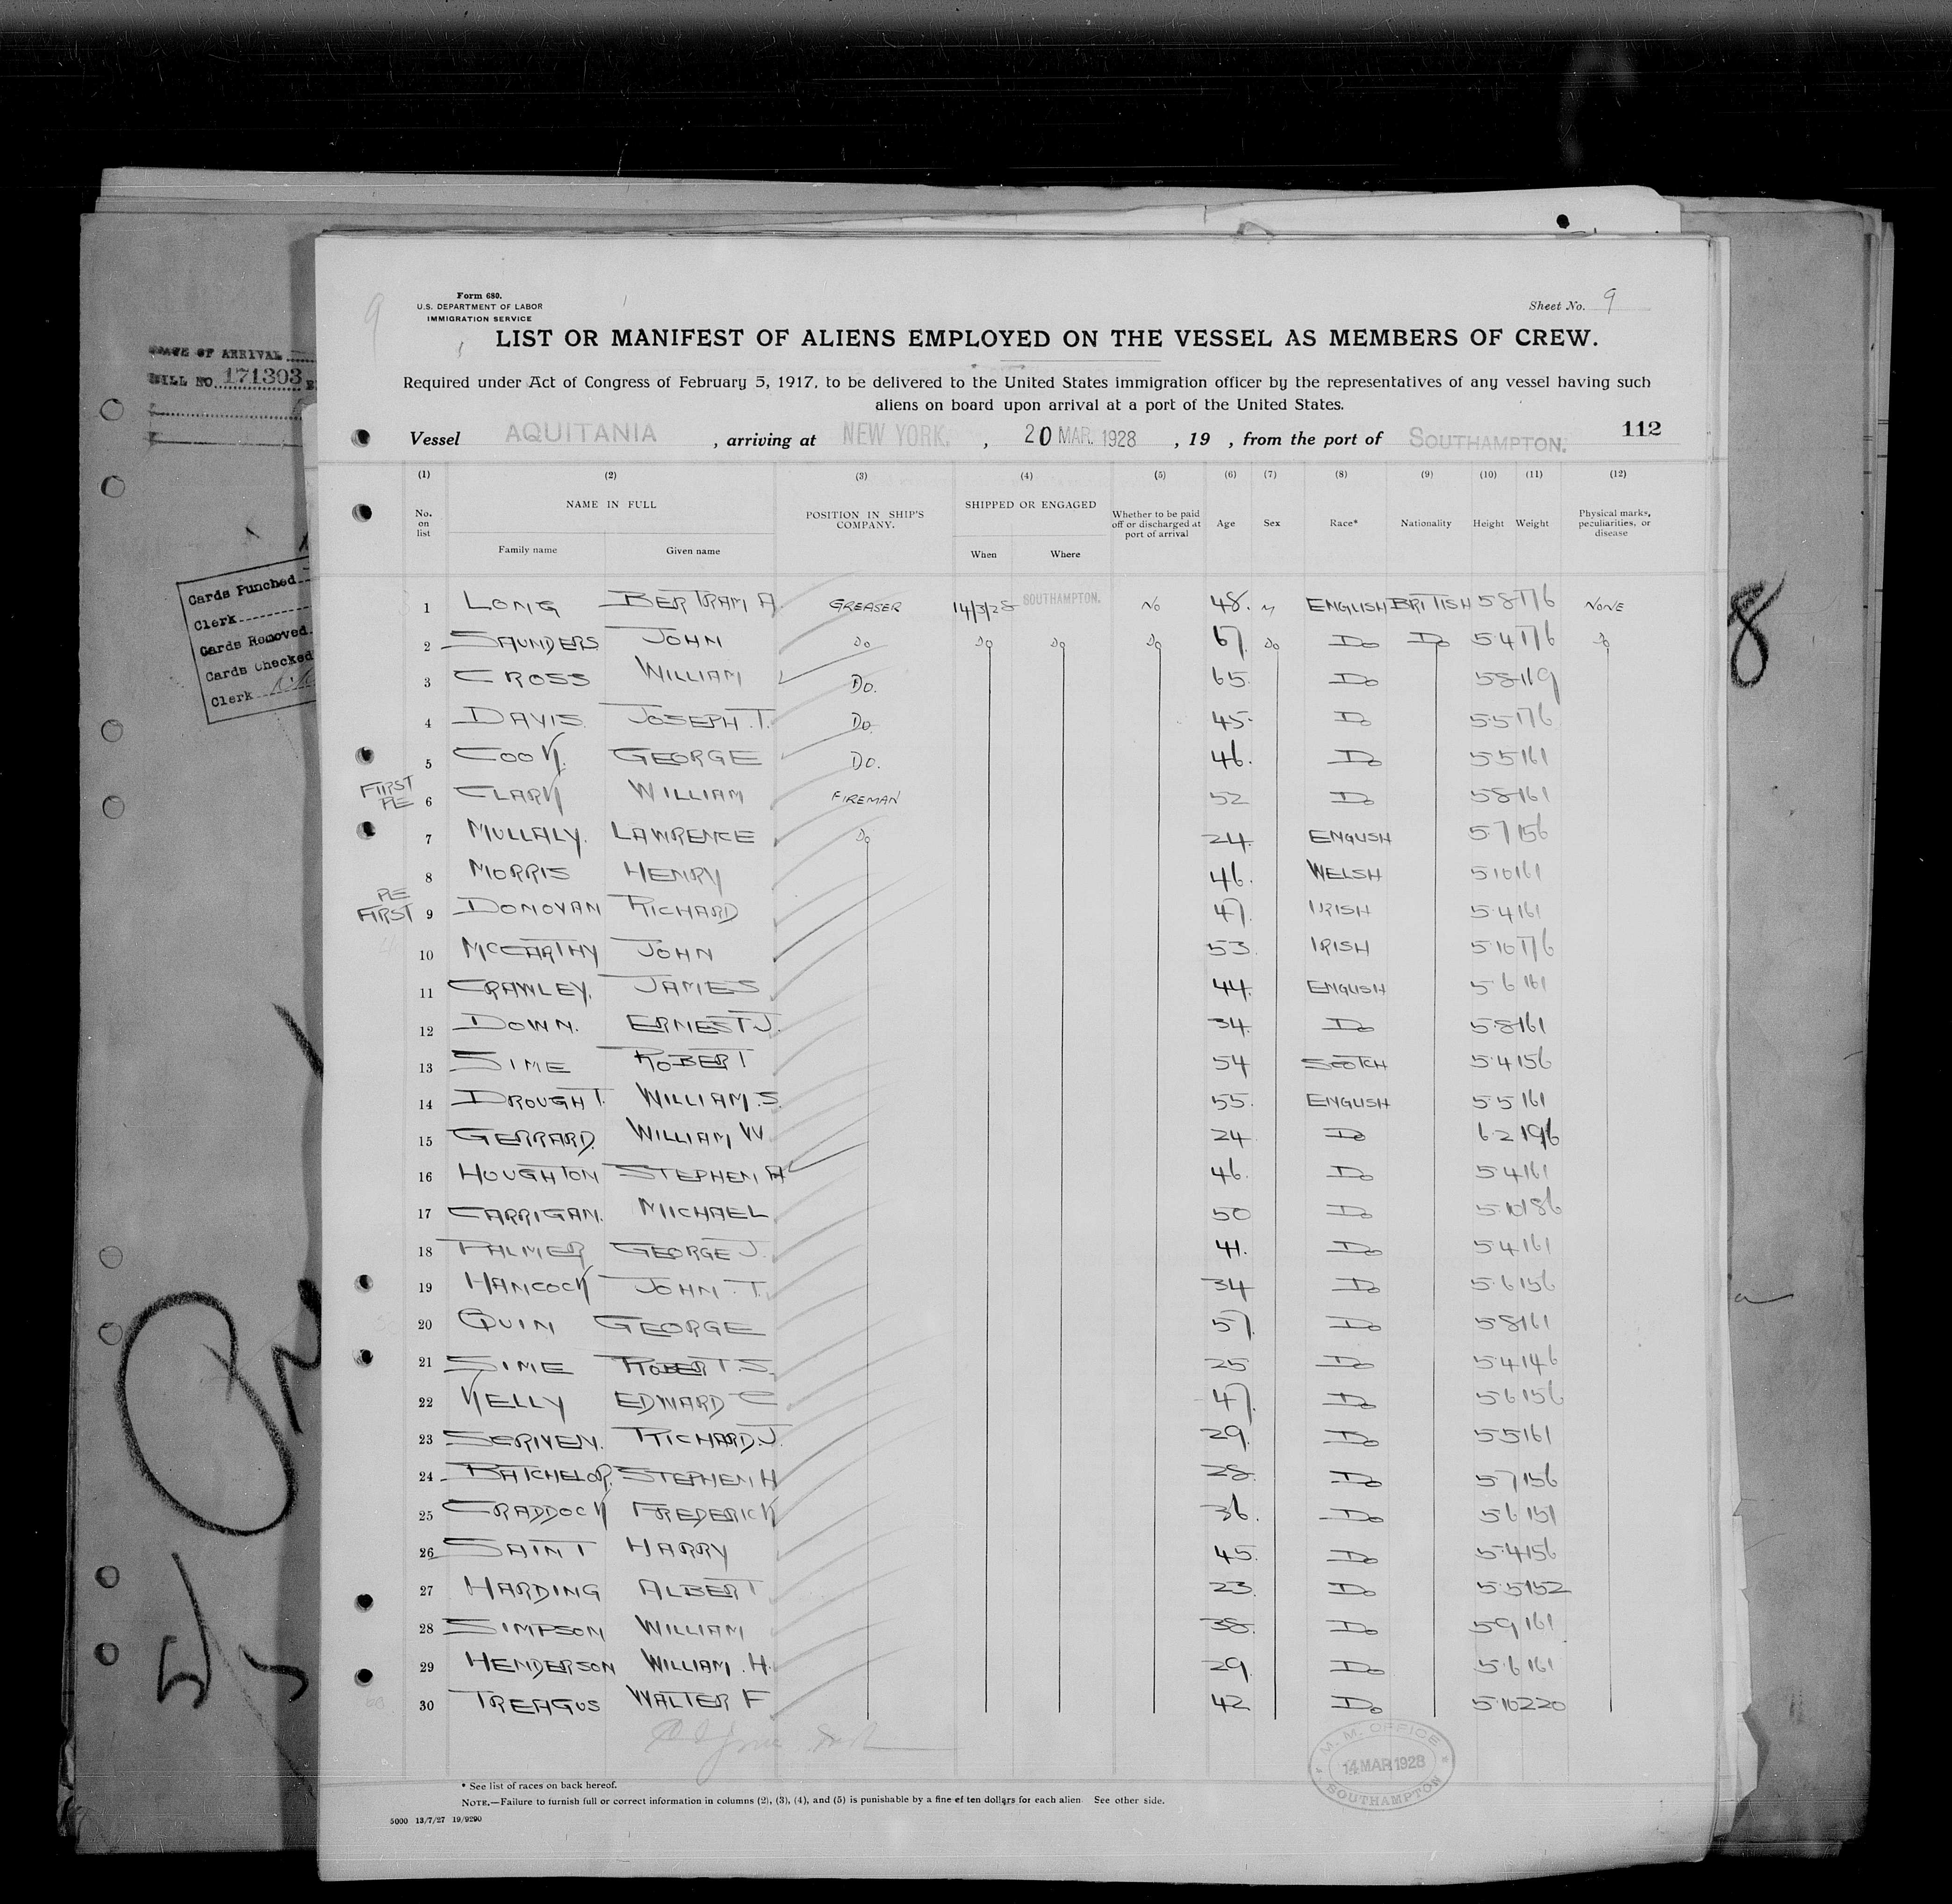 Form 680.
U.S. DEPARTMENT OF LABOR
IMMIGRATION SERVICE
Sheet No. 9
9
LIST OR MANIFEST OF ALIENS EMPLOYED ON THE VESSEL AS MEMBERS OF CREW.
Required under Act of Congress of February 5, 1917, to be delivered to the United States immigration officer by the representatives of any vessel having such
aliens on board upon arrival at a port of the United States.
Vessel AQUITANIA , arriving at NEW YORK. , 20 MAR. 1928 , 19 , from the port of SOUTHAMPTON. 112
(1) (2) (3) (4) (5) (6) (7) (8) (9) (10) (11) (12)
No. on list NAME IN FULL Family name Given name POSITION IN SHIP'S COMPANY. SHIPPED OR ENGAGED When Where Whether to be paid off or discharged at port of arrival Age Sex Race* Nationality Height Weight Physical marks, peculiarities, or disease
1 LONG BERTRAM A. GREASER 14/3/28 SOUTHAMPTON. NO 48. M ENGLISH BRITISH 5 8 176 NONE
2 SAUNDERS JOHN Do Do Do Do 67. Do Do Do 5 4 176 Do
3 CROSS WILLIAM Do. 65. Do 5 8 119
4 DAVIS. JOSEPH.T. Do. 45. Do 5 5 176
5 COOK. GEORGE Do. 46. Do 5 5 161
FIRST
6 CLARK WILLIAM FIREMAN 52 Do 5 8 161
7 MULLALY. LAWRENCE Do 24. ENGLISH 5 7 156
8 MORRIS HENRY 46. WELSH 5 10 161
FIRST 9 DONOVAN RICHARD 47. IRISH 5 4 161
10 McCARTHY JOHN 53 IRISH 5 10 176
11 CRAWLEY. JAMES 44. ENGLISH 5 6 161
12 DOWN. ERNEST J. 34. Do 5 8 161
13 SIME ROBERT 54 SCOTCH 5 4 156
14 DROUGHT. WILLIAM.S. 55. ENGLISH 5 5 161
15 GERRARD. WILLIAM W. 24 Do 6 2 196
16 HOUGHTON STEPHEN A 46. Do 5 4 161
17 CARRIGAN. MICHAEL 50 Do 5 10 186
18 PALMER GEORGE J. 41. Do 5 4 161
19 HANCOCK JOHN.T. 34 Do 5 6 156
20 QUIN GEORGE 57. Do 5 8 161
21 SIME ROBERT.S. 25 Do 5 4 146
22 KELLY EDWARD C 47. Do 5 6 156
23 SCRIVEN. RICHARD.J. 29. Do 5 5 161
24 BATCHELOR. STEPHEN H 28. Do 5 7 156
25 CRADDOCK FREDERICK 36. Do 5 6 151
26 SAINT HARRY 45. Do 5 4 156
27 HARDING ALBERT 23. Do 5 5 152
28 SIMPSON WILLIAM 38. Do 5 9 161
29 HENDERSON WILLIAM.H. 29. Do 5 6 161
30 TREAGUS WALTER F 42 Do 5 10 220
M.M. OFFICE
14 MAR 1928
SOUTHAMPTON
* See list of races on back hereof.
NOTE.—Failure to furnish full or correct information in columns (2), (3), (4), and (5) is punishable by a fine of ten dollars for each alien. See other side.
5000 13/7/27 19/9290
OF ARRIVAL
BILL NO. 171303
Cards Punched
Clerk
Cards Removed
Cards Checked
Clerk
8